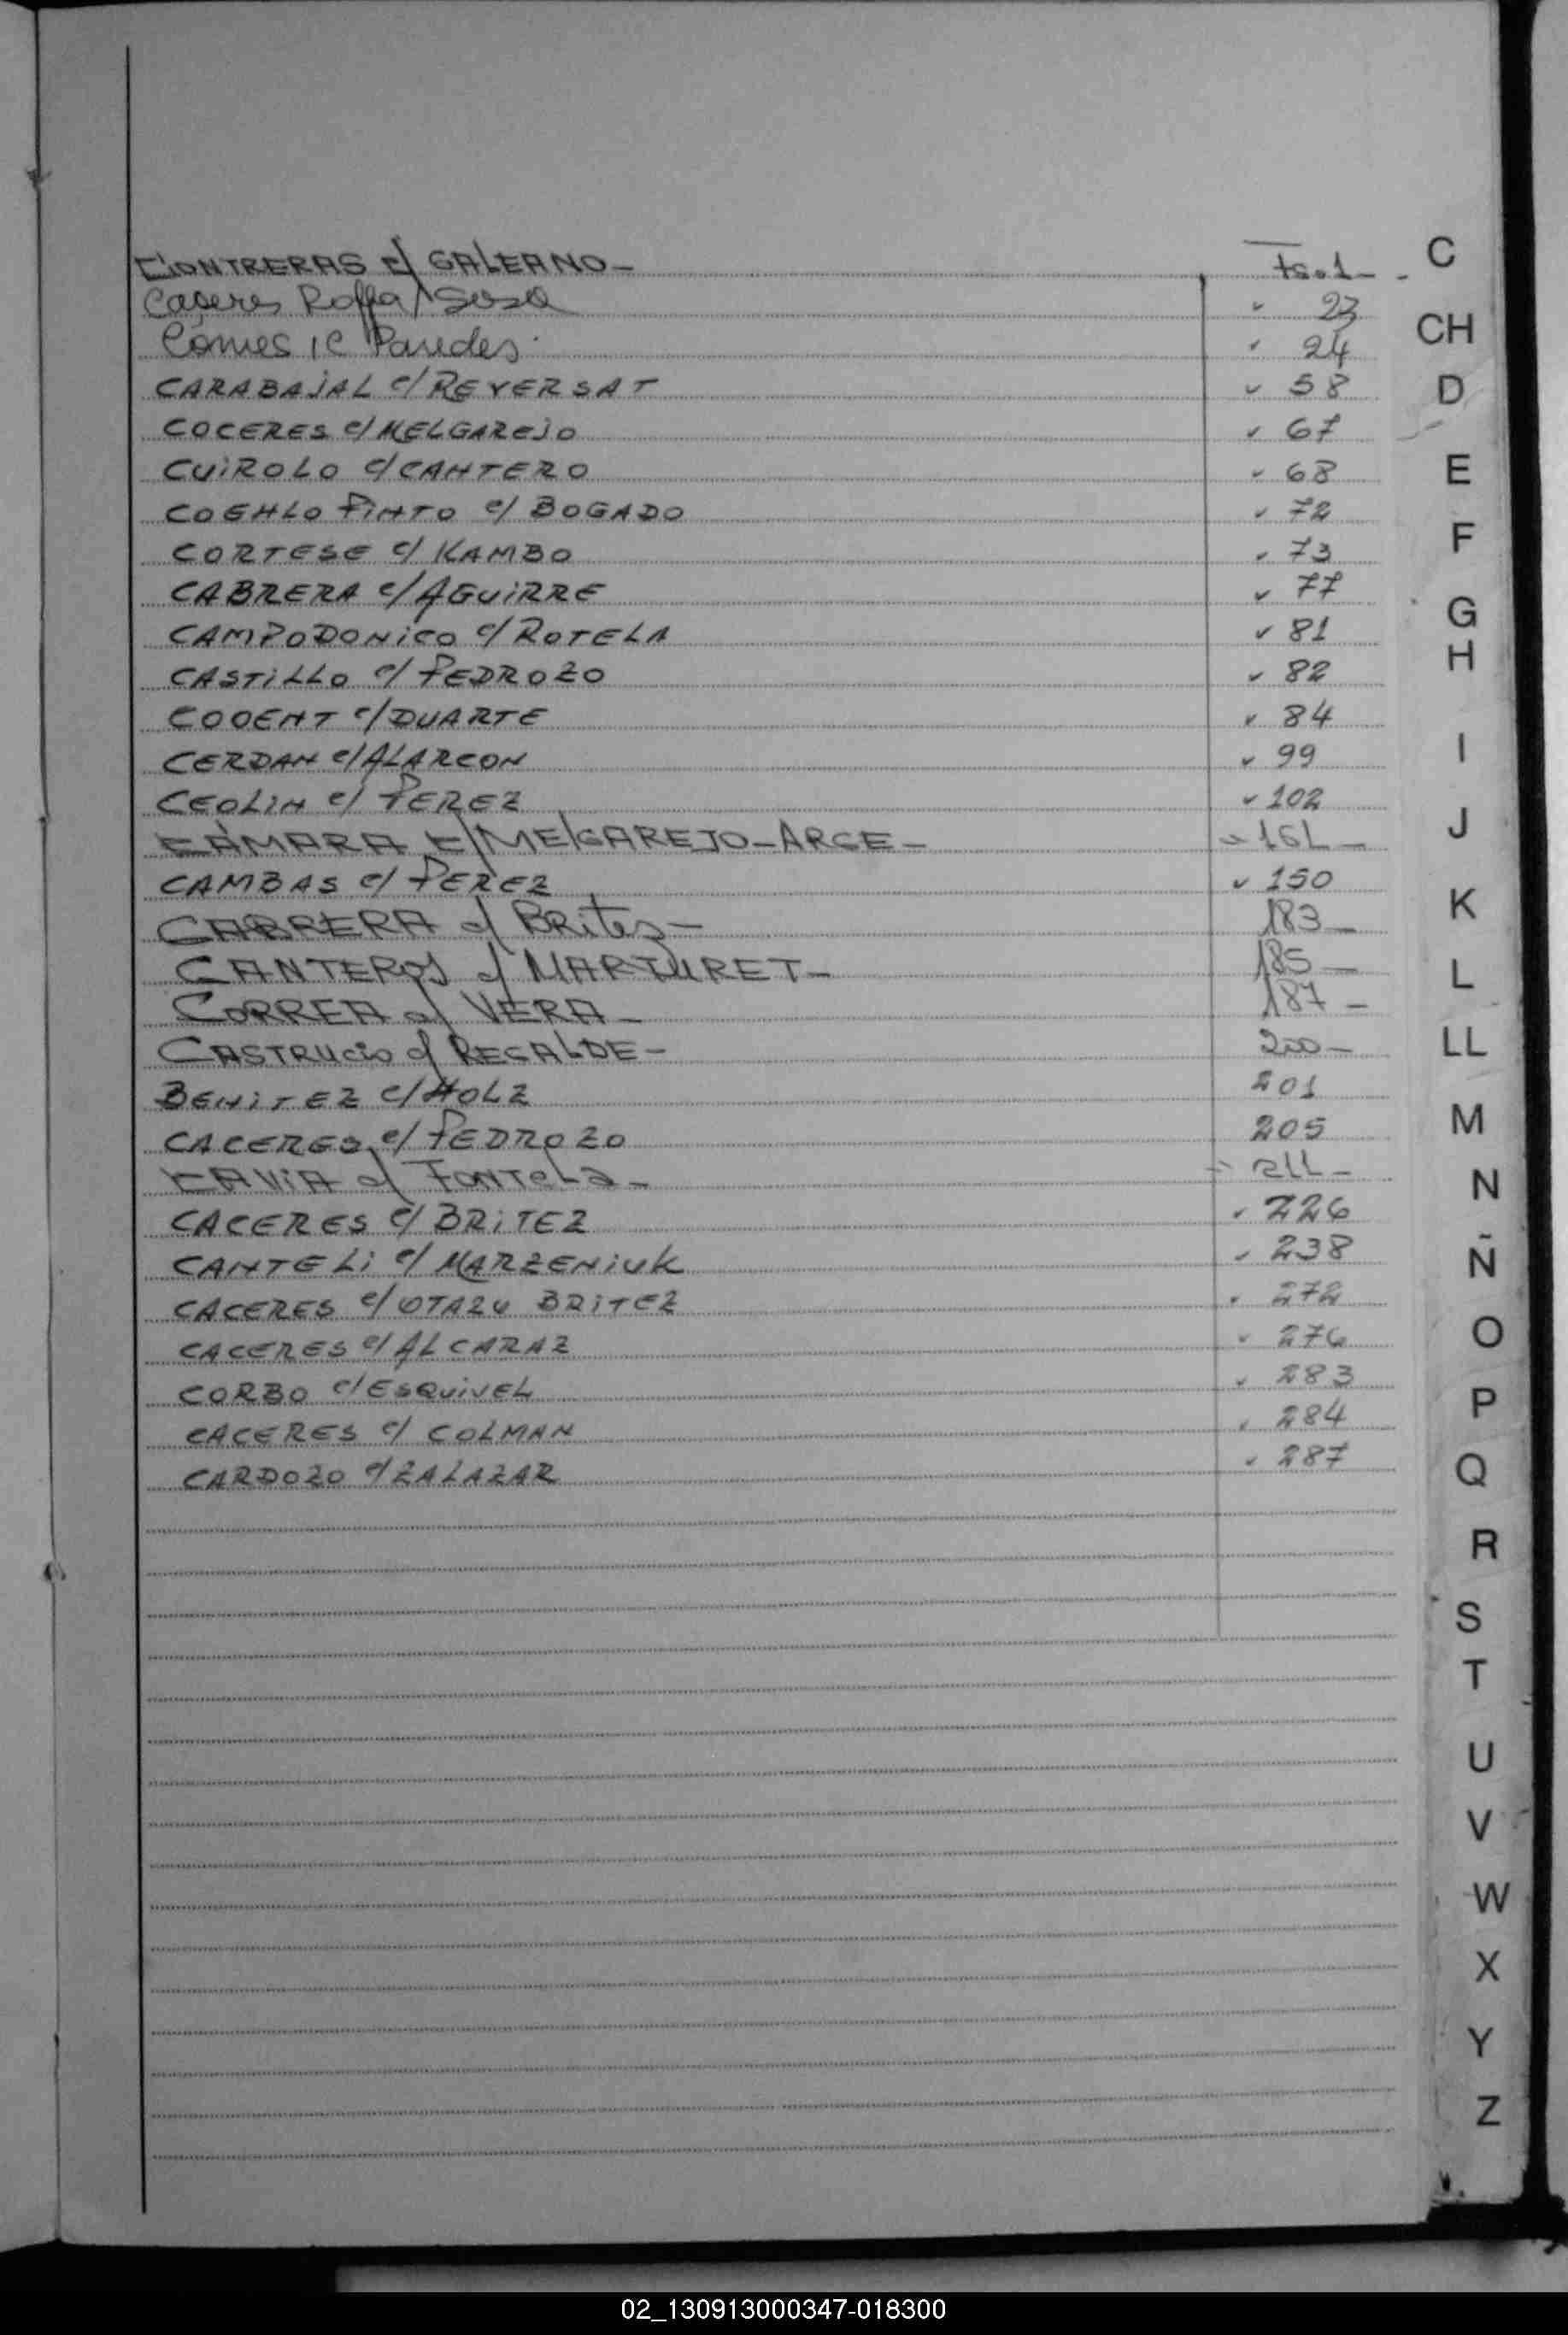 CONTRERAS c/ GALEANO- Fs.1-
Caseres Roffa / Sosa 23
Comes /c Paredes. 24
CARABAJAL c/ REVERSAT 58
COCERES c/ MELGAREJO 67
CUIROLO c/ CANTERO 68
COEHLO PINTO c/ BOGADO 72
CORTESE c/ KAMBO 73
CABRERA c/ AGUIRRE 77
CAMPODONICO c/ ROTELA 81
CASTILLO c/ PEDROZO 82
COOENT c/ DUARTE 84
CERDAN c/ ALARCON 99
CEOLIN c/ PEREZ 102
CÁMARA c/ MELGAREJO-ARCE-
CAMBAS c/ PEREZ 150
CABRERA c/ BRitez- 183-
CANTEROS c/ MARTURET- 185-
CORREA c/ VERA- 187-
CASTRUcio c/ RECALDE- 200-
BENITEZ c/ HOLZ 201
CACERES c/ PEDROZO 205
c/ FONTeLa-
CACERES c/ BRITEZ 226
CANTELI c/ MARZENIUK 238
CACERES c/ OTAZU BRITEZ 272
CACERES c/ ALCARAZ 276
CORBO c/ ESQUIVEL 283
CACERES c/ COLMAN 284
CARDOZO c/ ZALAZAR 287
C
CH
D
E
F
G
H
I
J
K
L
LL
M
N
Ñ
O
P
Q
R
S
T
U
V
W
X
Y
Z
02_130913000347-018300